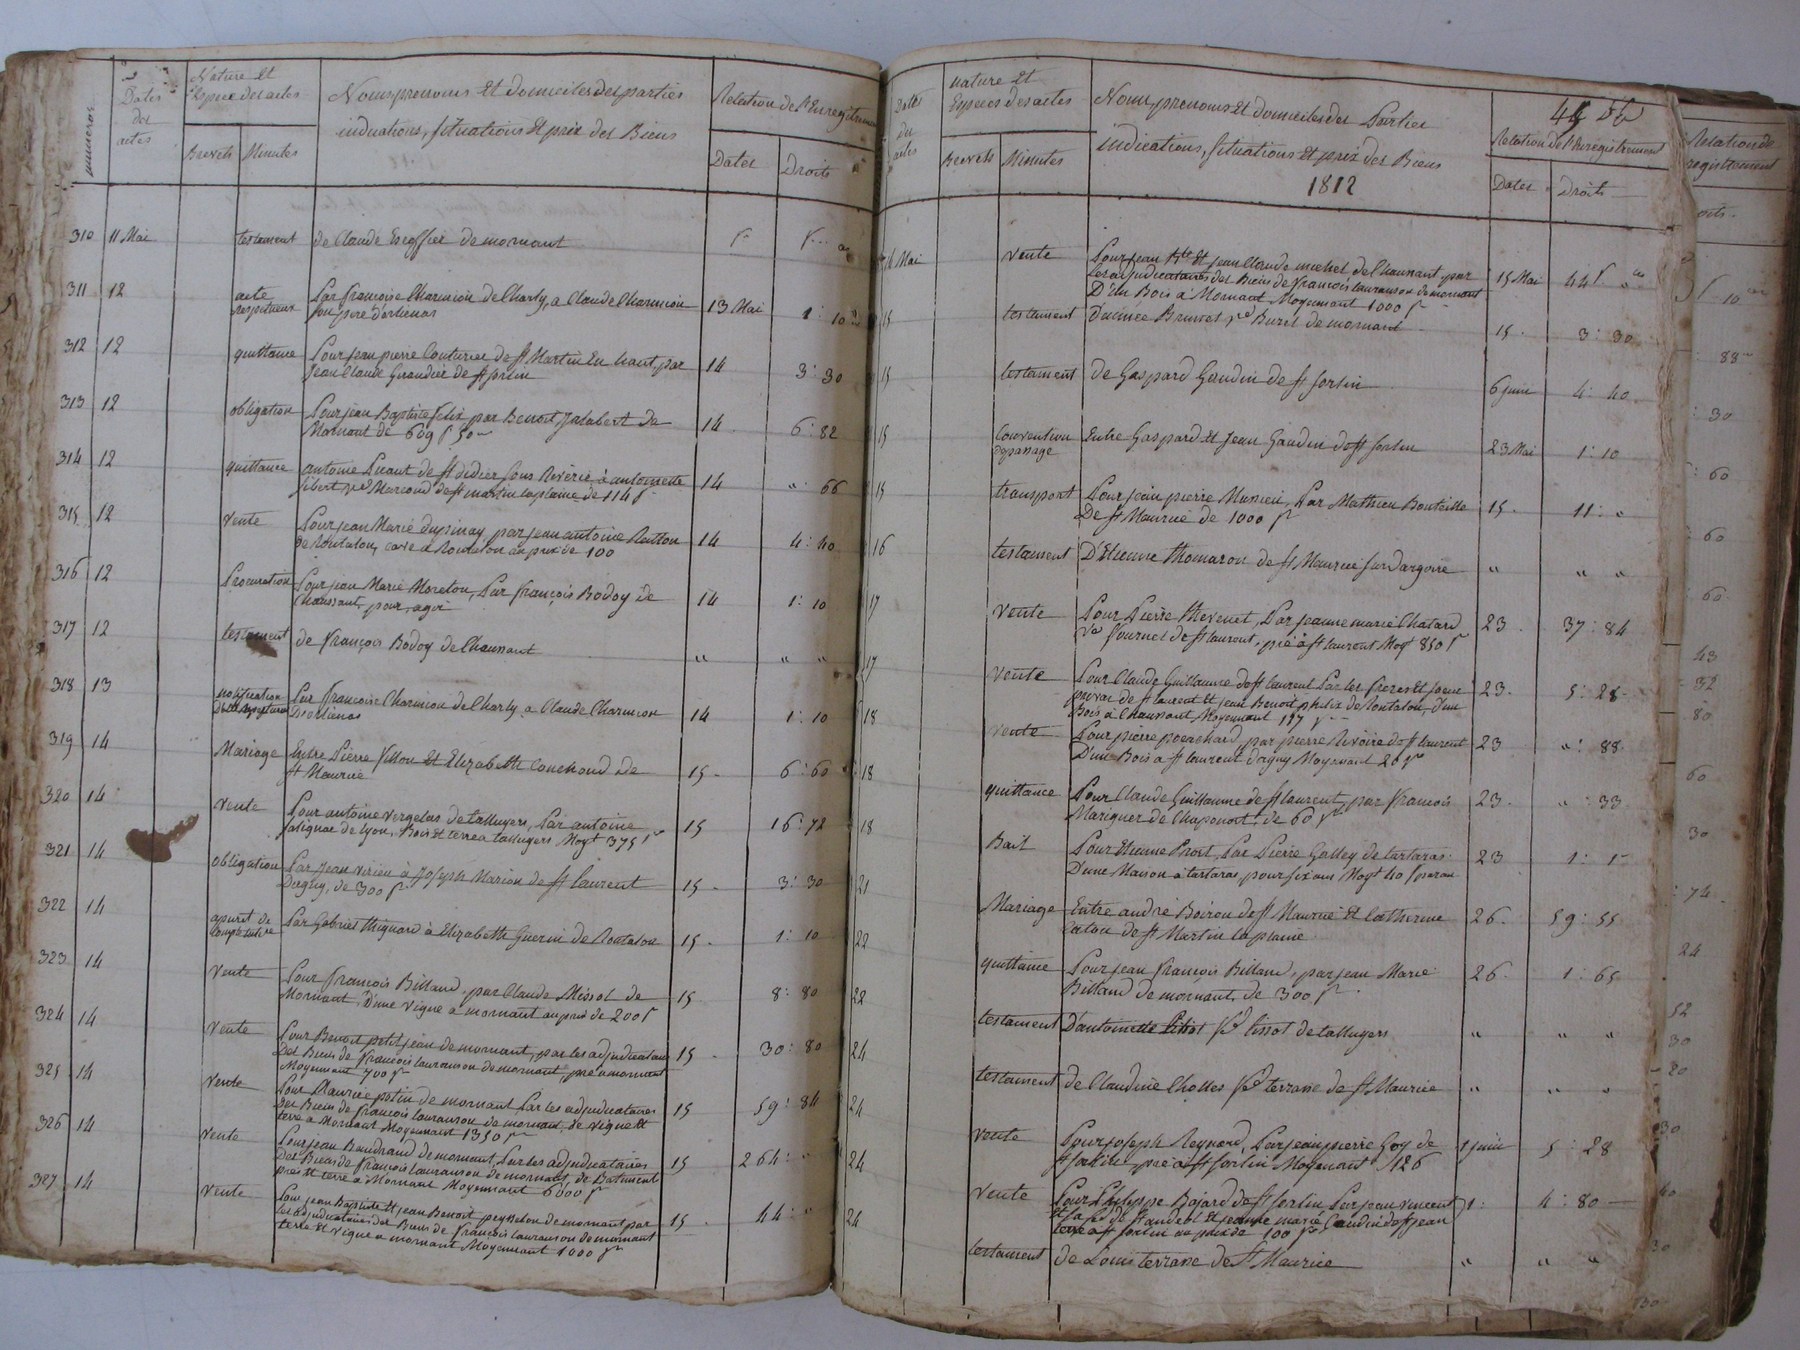 numeros
Dates
des
actes
Nature et
Espece des actes
Brevets Minutes
Noms prenoms Et domiciles des parties
indications, Situations Et prix des Biens
Relation de l'Enregistrem
Dates Droits
310 11 Mai testament de Claude Escoffier de mornant
311 12 acte Par françoise Charmion de Charly, a Claude Charmion 13 Mai 1 : 10
respectueux son pere d'orlienas
312 12 quittance Pour jean pierre Couturier de St Martin En haut, par 14 3 : 30
jean Claude Giraudier de St sorlin
313 12 obligation Pour jean Baptiste felix, par Benoit Jalabert de 14 6 : 82
Mornant de 609 f 50
314 12 quittance antoine de St didier Sous Riverie à antoinette 14 " : 66
Sibert ve Marcoud de St martin la plaine de 114 f
315 12 vente Pour jean Marie dupinay, par jean antoine Ratton 14 4 : 40
de Rontalon, cave a Rontalon au prix de 100
316 12 Procuration Pour jean Marie Moreton, Par françois Bodoy de 14 1 : 10
Chaussant, pour agir
317 12 testament de françois Bodoy de Chaussant " " "
318 13 notification Par françoise Charmion de Charly a Claude Charmion 14 1 : 10
D'orlienas
319 14 Mariage Entre Pierre fillon Et Elizabeth Couchoud de 15 6 : 60
St Maurice
320 14 vente Pour antoine vergelas de talluyers, Par antoine 15 16 : 72
salignac de lyon, Bois Et terre a talluyers Moyt 375 f
321 14 obligation Par Jean virieu à Joseph Marion de St laurent 15 3 : 30
Dagny, de 300 f
322 14 apuret de Par Gabriel Mignard à Elizabeth Guerin de Rontalon 15 1 : 10
compte tutelle
323 14 vente Pour françois Billand, par Claude Messol de 15 8 : 80
Mornant, D'une vigne a mornant au prix de 200 f
324 14 vente Pour Benoit petit jean de mornant, par les adjudicataires 15 30 : 80
Des Biens de françois lauranson de mornant, pré a mornant
Moyennant 700 f
325 14 vente Pour Maurice potin de mornant Par les adjudicataires 15 59 : 84
des Biens de françois lauranson de mornant, de vigne Et
terre a Mornant Moyennant 1350 f
326 14 vente Pour jean Baudrand de mornant, Par les adjudicataires 15 264 : "
des Biens de françois lauranson de mornant, de Batiment
prés Et terre a Mornant Moyennant 6000 f
327 14 vente Pour jean Baptiste Et jean Benoit peysselon de mornant par 15 44 : "
les adjudicataires des Biens de françois lauranson de mornant
terre Et vigne a mornant Moyennant 1000 f
Dates
du
actes
nature Et
Especes des actes
Brevets Minutes
Noms, prenoms Et domiciles des Parties
indications, Situations Et prix des Biens
1812
Relation de l'Enregistrement
Dates Droits
16 Mai vente Pour jean Bte Et jean Claude michel de Chaussant par 15 Mai 44 f
Les adjudicataires des Biens de françois lauranson de mornant
D'un Bois a Mornant Moyennant 1000 f
15 testament Brunet ve Buret de mornant 15 3 : 30
15 testament de Gaspard Gaudin de St Sorlin 6 juin 4 : 40
15 Convention Entre Gaspard Et jean Gaudin de St Sorlin 23 Mai 1 : 10
de passage
15 transport Pour jean pierre Par Mathieu Bouteille 15 11 : "
De St Maurice de 1000 f
16 testament D'Etienne thomaron de St Maurice sur Dargoire " " "
17 vente Pour Pierre thevenet, Par jeanne marie Chatard 23 37 : 84
ve fournel de St laurent, pré a St laurent Moyt 850 f
17 vente Pour Claude Guillaume de St laurent Par les freres Et soeur 23 5 : 28
de St laurent Et jean Benoit phelix de Rontalon, d'un
Bois a Chaussant Moyennant 117 f
18 vente Pour pierre ponchard, par pierre Rivoire de St laurent 23 " : 88
D'une Bois a St laurent dagny Moyennant 20 f
18 quittance Pour Claude Guillaume de St laurent, par francois 23 " : 33
Mariguer de Chaponost, de 60 f
18 Bail Pour Etienne Prost, Par Pierre Galley de tartaras 23 1 : 1
D'une Maison a tartaras, pour six ans Moyt 40 f par an
21 Mariage Entre andré Boiron de St Maurice Et Catherine 26 59 : 55
de St Martin la plaine
22 quittance Pour jean françois Billand, par jean Marie 26 1 : 65
Billand de mornant, de 300 f
22 testament D'antoinette fe tissot de talluyers " " "
24 testament de Claudine Cholles fe terrasse de St Maurice " " "
24 vente Pour joseph Reynard, Par jean pierre Goy de 1 juin 5 : 28
St Sorlin, pré a St Sorlin Moyennant 126
24 vente Pour Philippe Bajard de St Sorlin Par jean vincent 1 4 : 80
Et jeanne marie Gaudin de St jean
terre a St Sorlin au prix de 100 f
24 testament de Louis terrasse de St Maurice " " "
Relation de
registrement
10
88
30
60
60
60
43
32
80
60
30
74
24
52
30
20
30
40
30